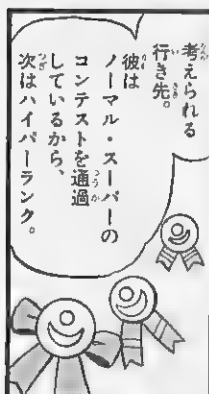 考えられる
行き先。
彼は
ノーマル・スーパーの
コンテストを通過
しているから、
次はハイパーランク。